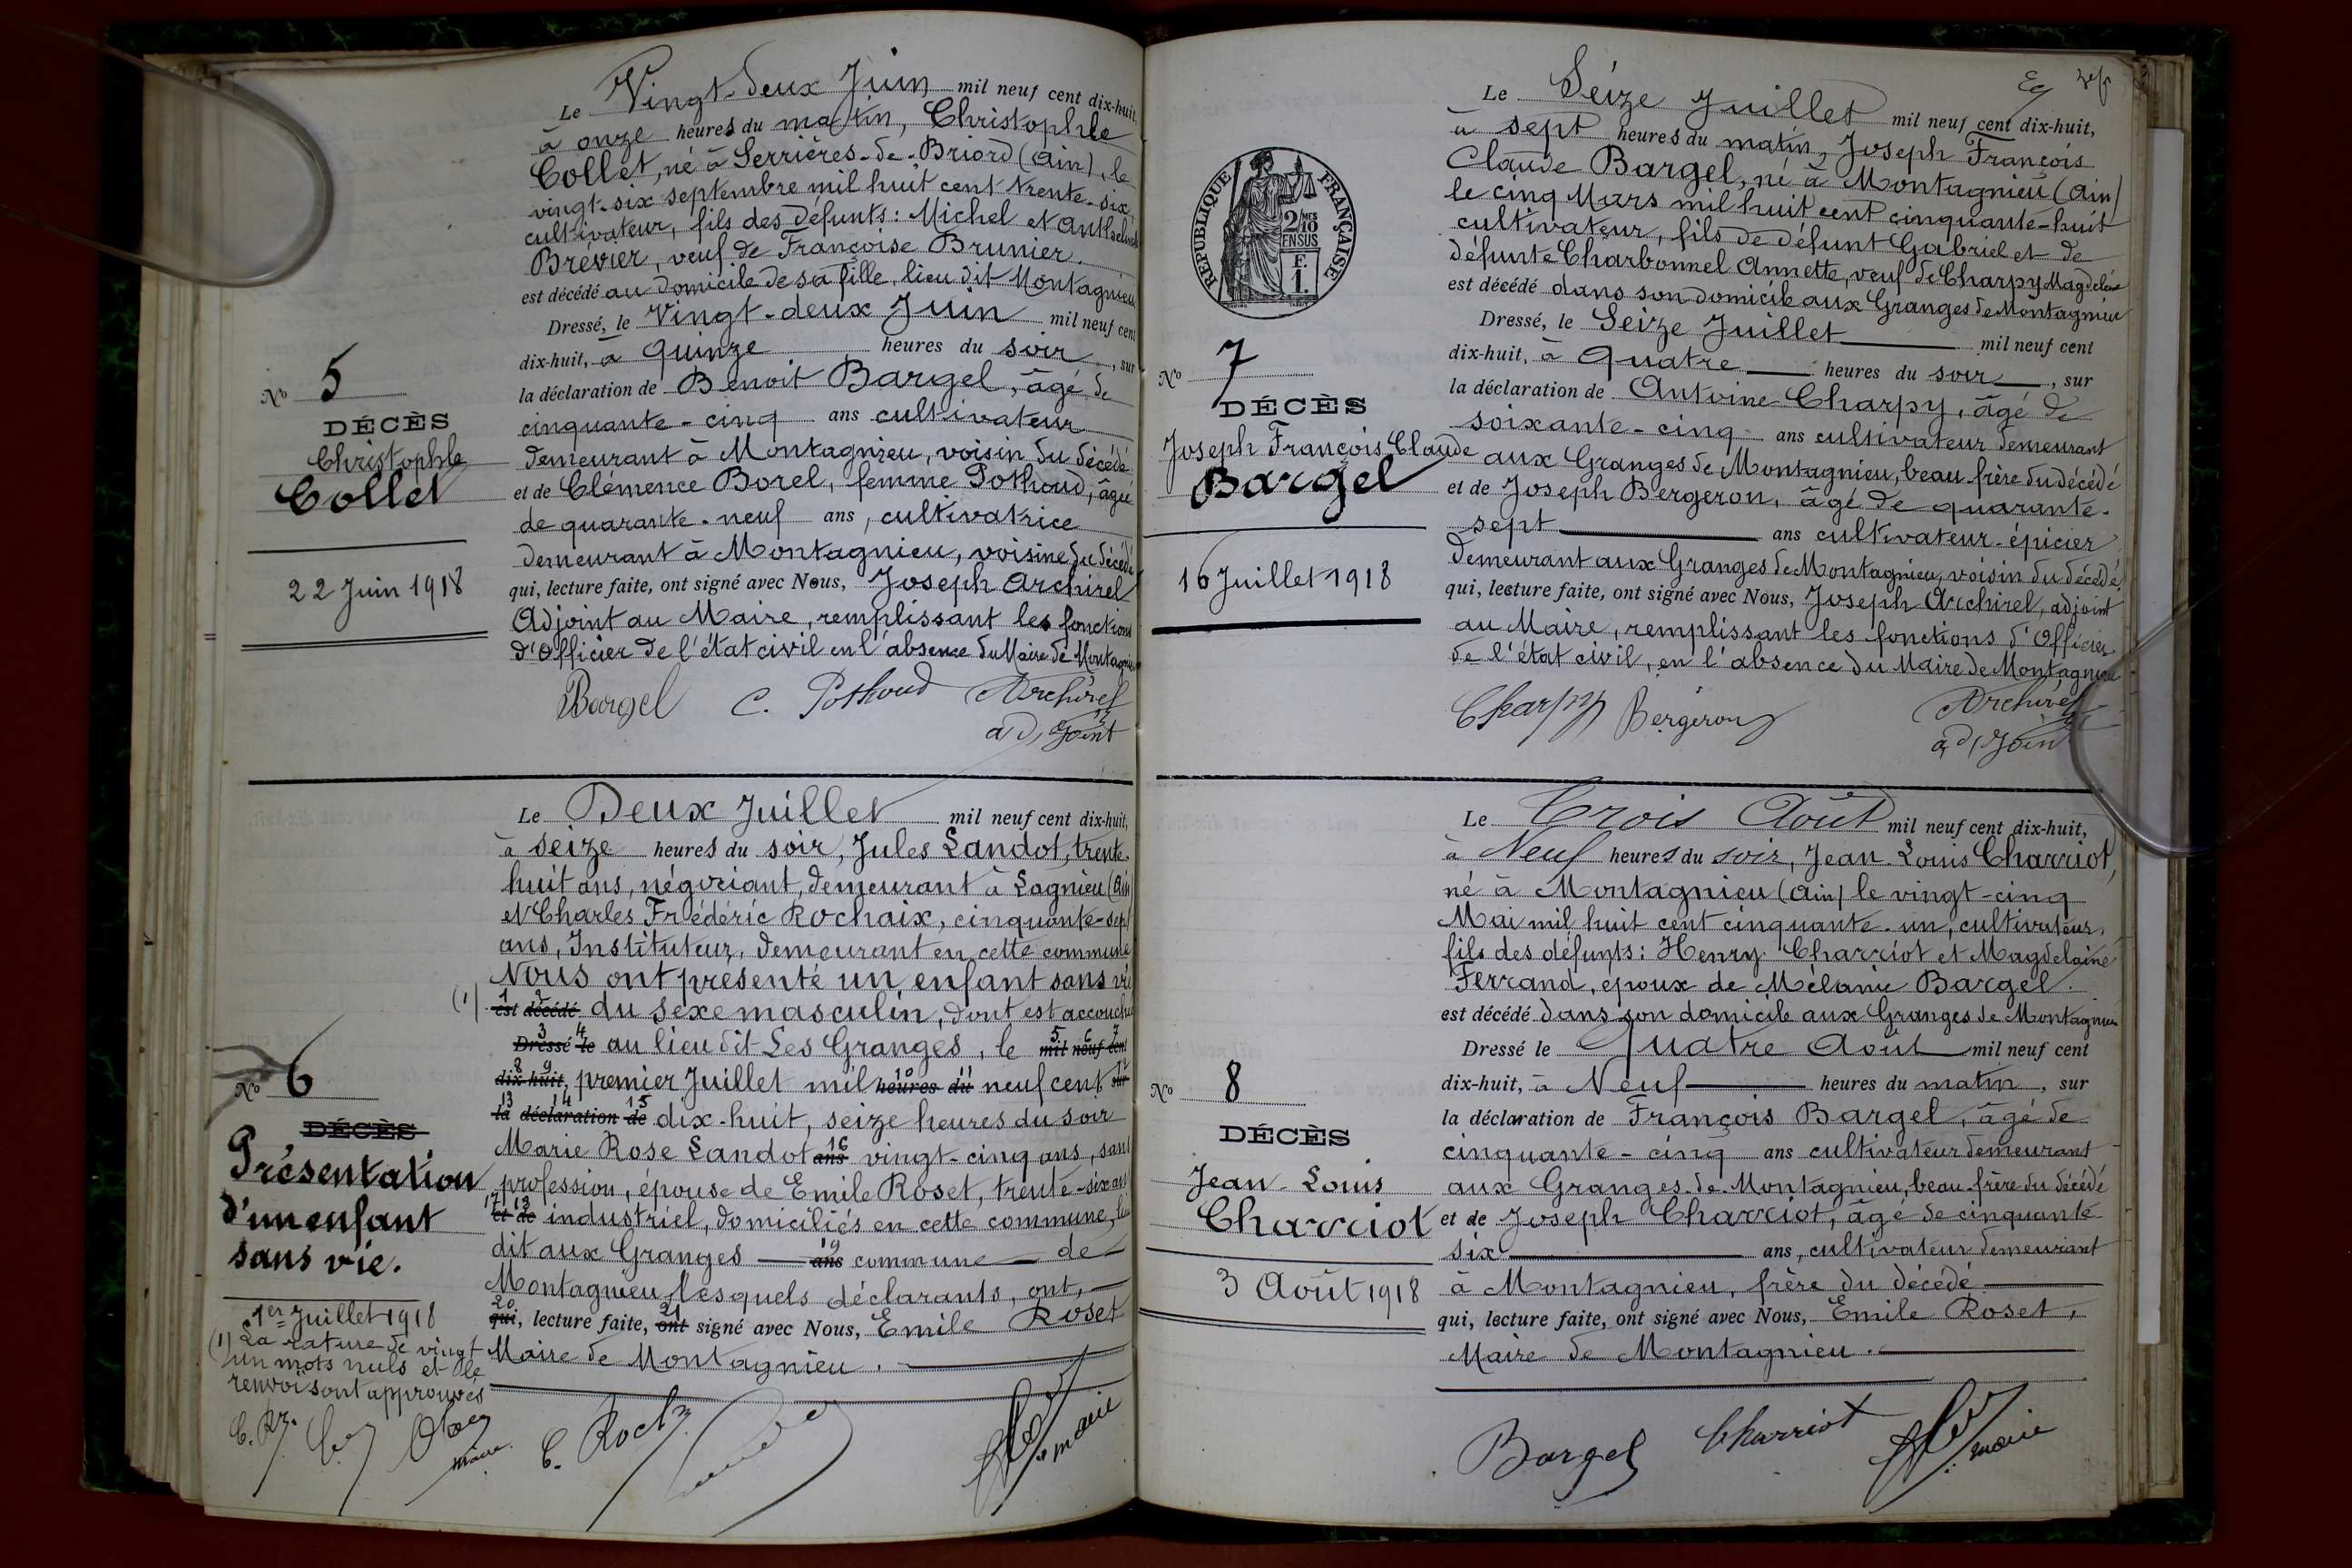 Le Vingt-deux Juin mil neuf cent dix-huit,
à onze heures du matin, Christophle
Collet, né à Serrières-de-Briord (Ain), le
vingt-six septembre mil huit cent trente-six,
cultivateur, fils des défunts: Michel et
Brevier, veuf de Françoise Brunier.
est décédé au domicile de sa fille, lieu dit Montagnieu
Dressé, le Vingt-deux Juin mil neuf cent
dix-huit, à quinze heures du soir, sur
la déclaration de Benoit Bargel, âgé de
cinquante-cinq ans cultivateur
demeurant à Montagnieu, voisin du décédé
et de Clémence Borel, femme Pothoud, âgée
de quarante-neuf ans, cultivatrice
demeurant à Montagnieu, voisine du décédé
qui, lecture faite, ont signé avec Nous, Joseph Archirel
Adjoint au Maire, remplissant les fonctions
d'Officier de l'état civil en l'absence du Maire de Montagnieu
Bargel C. Pothoud Archirel
adjoint
No 5
DÉCÈS
Christophle
Collet
22 Juin 1918
Le Deux Juillet mil neuf cent dix-huit,
à seize heures du soir, Jules Landot, trente-
huit ans, négociant, demeurant à Lagnieu (Ain)
et Charles Frédéric Rochaix, cinquante-sept
ans, Instituteur, demeurant en cette commune
Nous ont présenté un enfant sans vie
(1) 1 est 2 décédé du sexe masculin, dont est accouchée
3 Dressé 4 le au lieu dit Les Granges, le 5 mil 6 neuf 7 cent
8 dix 9 huit, premier Juillet mil 10 heures 11 du neuf cent 12 sur
13 la 14 déclaration 15 de dix-huit, seize heures du soir
Marie Rose Landot 16 ans vingt-cinq ans, sans
profession, épouse de Emile Roset, trente-six ans
17 et 18 de industriel, domiciliés en cette commune, lieu
dit aux Granges 19 ans commune de
Montagnieu, lesquels déclarants, ont,
20 qui, lecture faite, 21 ont signé avec Nous, Emile Roset
Maire de Montagnieu.
No 6
DÉCÈS
Présentation
d'un enfant
sans vie.
1er Juillet 1918
(1) La rature de vingt
un mots nuls et le
renvoi sont approuvés
maire
maire
Le Seize Juillet mil neuf cent dix-huit,
à sept heures du matin, Joseph François
Claude Bargel, né à Montagnieu (Ain)
le cinq Mars mil huit cent cinquante-huit
cultivateur, fils de défunt Gabriel et de
défunte Charbonnel Annette, veuf de Charpy Magdeleine
est décédé dans son domicile aux Granges de Montagnieu
Dressé, le Seize Juillet mil neuf cent
dix-huit, à Quatre heures du soir, sur
la déclaration de Antoine Charpy, âgé de
soixante-cinq ans cultivateur demeurant
aux Granges de Montagnieu, beau frère du décédé
et de Joseph Bergeron, âgé de quarante-
sept ans cultivateur-épicier
demeurant aux Granges de Montagnieu, voisin du décédé
qui, lecture faite, ont signé avec Nous, Joseph Archirel, adjoint
au Maire, remplissant les fonctions d'Officier
de l'état civil, en l'absence du Maire de Montagnieu
Charpy Bergeron Archirel
adjoint
RÉPUBLIQUE FRANÇAISE
2/10 MES
EN SUS
F.
1.
No 7
DÉCÈS
Joseph François Claude
Bargel
16 Juillet 1918
Le Trois Août mil neuf cent dix-huit,
à Neuf heures du soir, Jean-Louis Charriot,
né à Montagnieu (Ain) le vingt-cinq
Mai mil huit cent cinquante-un, cultivateur,
fils des défunts: Henry Charriot et Magdelaine
Ferrand, époux de Mélanie Bargel.
est décédé dans son domicile aux Granges de Montagnieu
Dressé le Quatre Août mil neuf cent
dix-huit, à Neuf heures du matin, sur
la déclaration de François Bargel, âgé de
cinquante-cinq ans cultivateur demeurant
aux Granges de Montagnieu, beau frère du décédé
et de Joseph Charriot, âgé de cinquante-
six ans, cultivateur demeurant
à Montagnieu, frère du décédé
qui, lecture faite, ont signé avec Nous, Emile Roset,
Maire de Montagnieu.
Bargel Charriot maire
No 8
DÉCÈS
Jean-Louis
Charriot
3 Août 1918